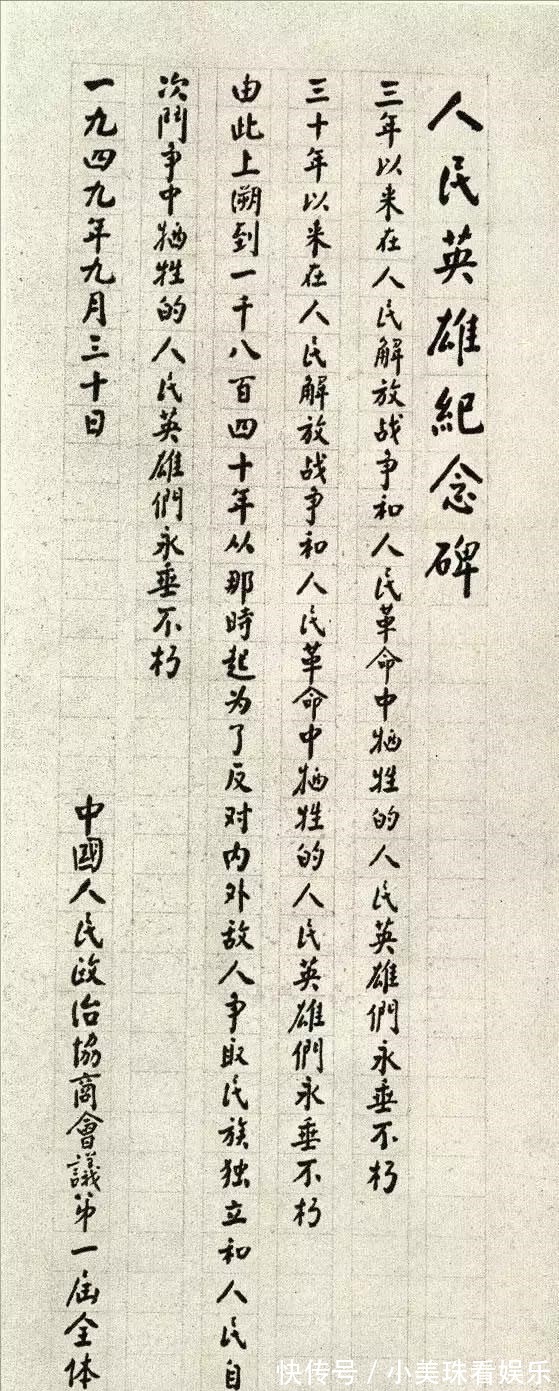 人民英雄紀念碑
三年以来在人民解放战争和人民革命中牺牲的人民英雄們永垂不朽
三十年以来在人民解放战争和人民革命中牺牲的人民英雄們永垂不朽
由此上溯到一千八百四十年从那時起为了反对内外敌人争取民族独立和人民自
次鬥争中牺牲的人民英雄們永垂不朽
一九四九年九月三十日
中國人民政治協商會議第一届全体
快传号/小美珠看娱乐